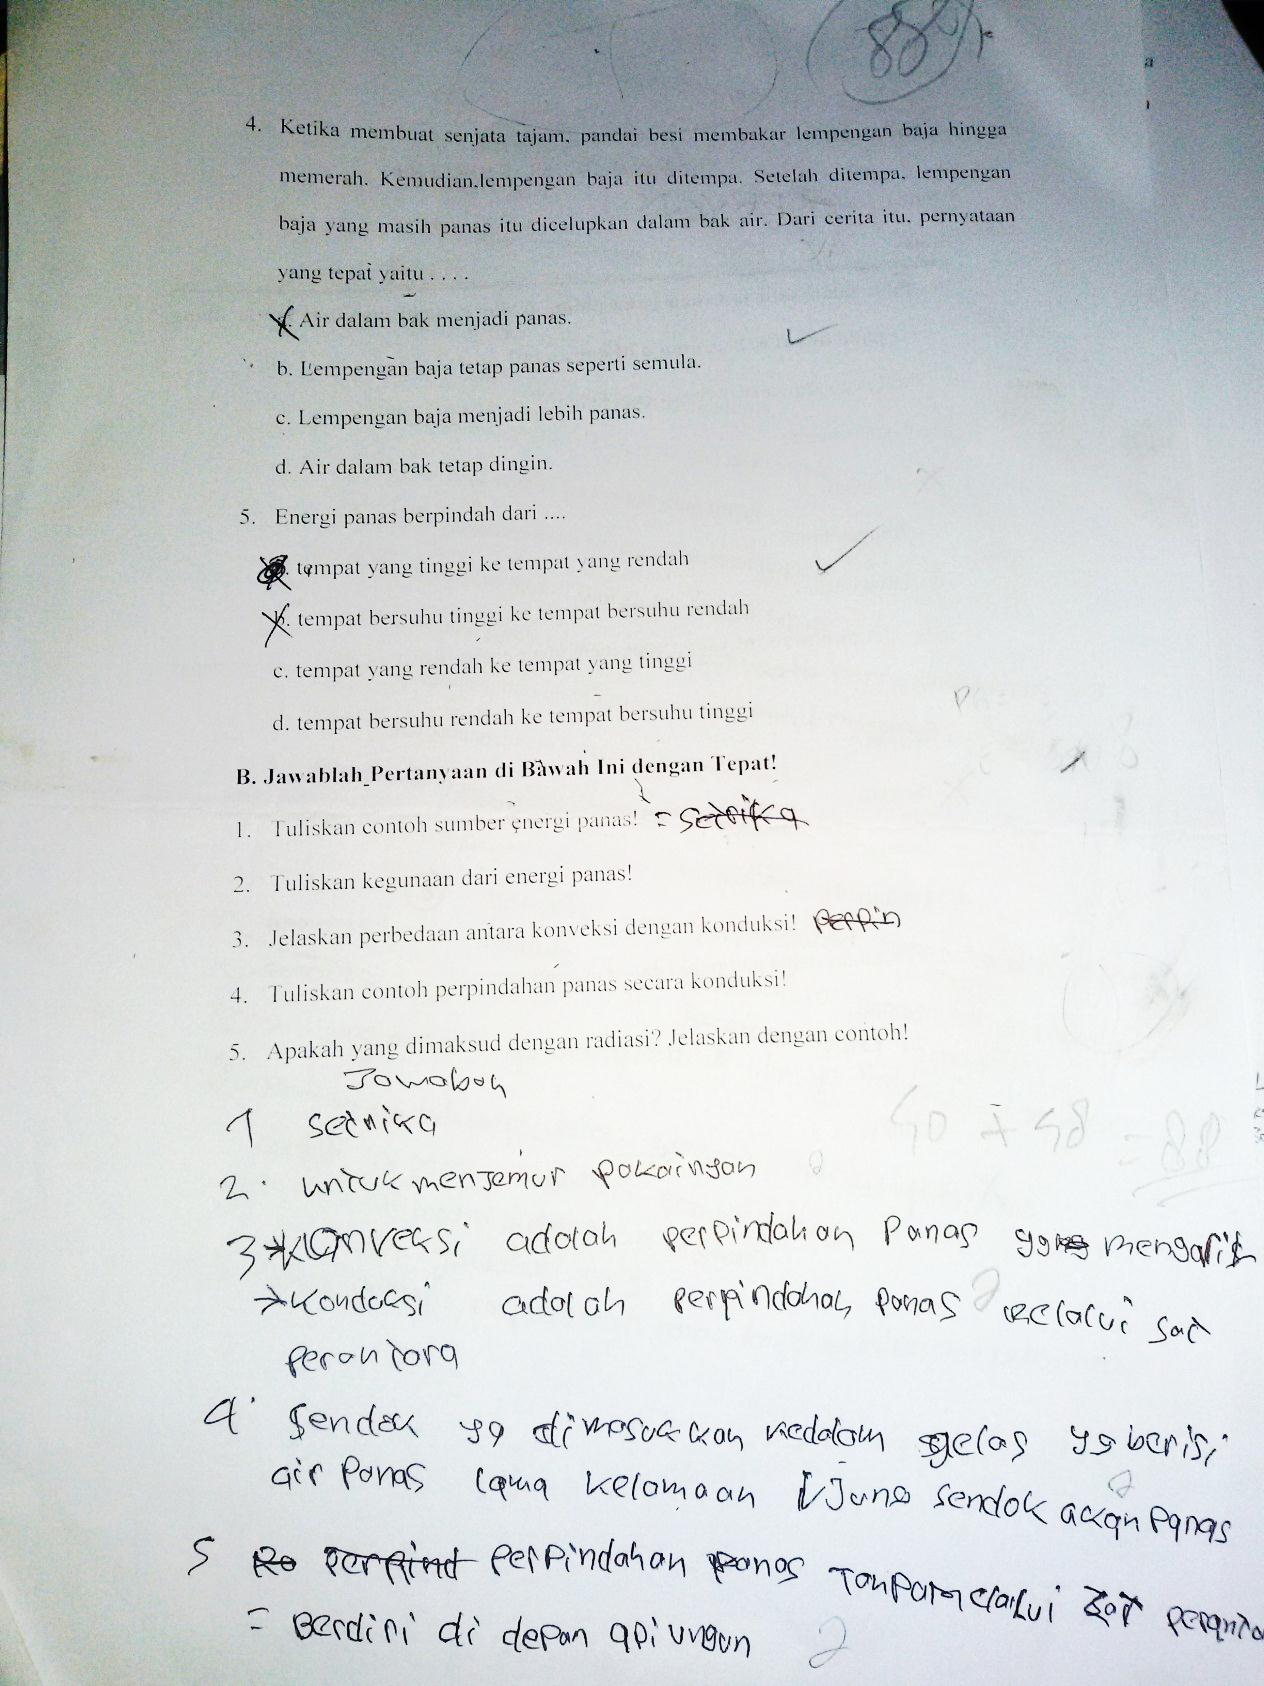 88
4. Ketika membuat senjata tajam, pandai besi membakar lempengan baja hingga
memerah. Kemudian,lempengan baja itu ditempa. Setelah ditempa, lempengan
baja yang masih panas itu dicelupkan dalam bak air. Dari cerita itu, pernyataan
yang tepat yaitu . . . .
Air dalam bak menjadi panas.
b. Lempengan baja tetap panas seperti semula.
c. Lempengan baja menjadi lebih panas.
d. Air dalam bak tetap dingin.
5. Energi panas berpindah dari ....
tempat yang tinggi ke tempat yang rendah
b. tempat bersuhu tinggi ke tempat bersuhu rendah
c. tempat yang rendah ke tempat yang tinggi
d. tempat bersuhu rendah ke tempat bersuhu tinggi
B. Jawablah Pertanyaan di Bawah Ini dengan Tepat!
1. Tuliskan contoh sumber energi panas! = Setrika
2. Tuliskan kegunaan dari energi panas!
3. Jelaskan perbedaan antara konveksi dengan konduksi! Perpin
4. Tuliskan contoh perpindahan panas secara konduksi!
5. Apakah yang dimaksud dengan radiasi? Jelaskan dengan contoh!
Jawaban
1 Setrika
= 88
2. untuk menjemur pakaingan 2
3 → Konveksi adalah perpindahan Panas yg mengarir
→ Konduksi adalah perpindahan panas 2 melalui sat
perantara
4. Sendok yg dimasukkan kedalam gelas yg berisi
air Panas lama kelamaan sendok akan Panas 2
5 Perpind Perpindahan panas Tanpa melalui zat peranta
= Berdiri di depan api ungun 2